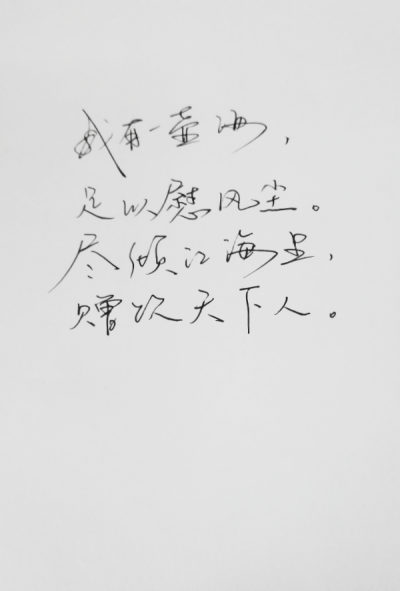 我有一壶酒，
足以慰风尘。
尽倾江海里，
赠饮天下人。